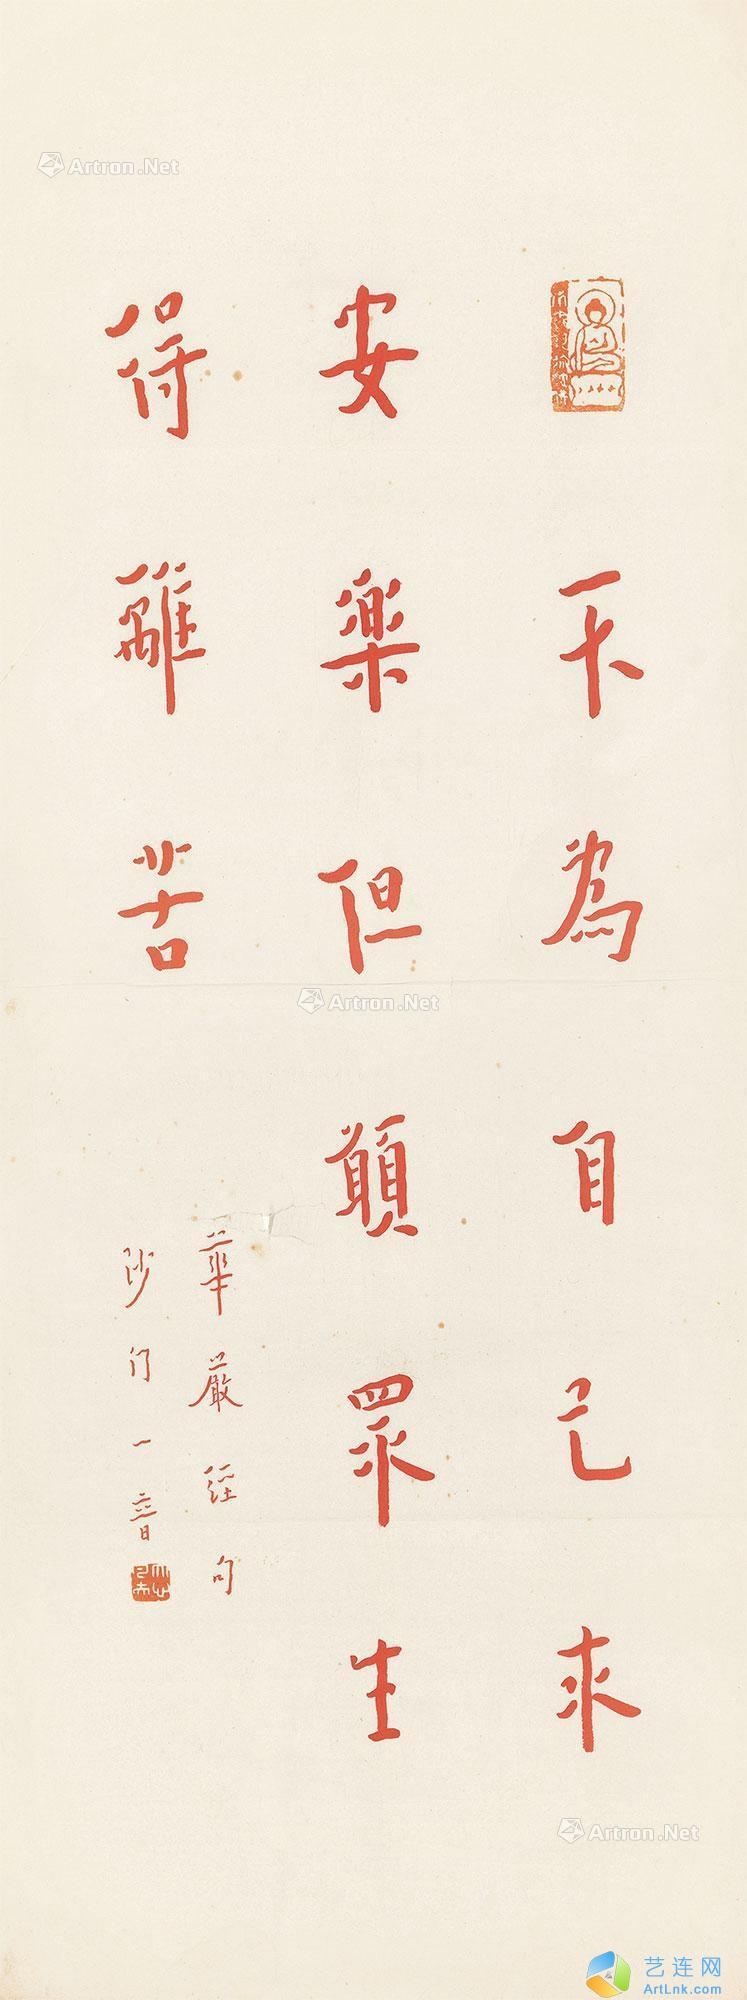 不為自己求
安樂但願眾生
得離苦
華嚴經句
沙门一音
Artron.Net
Artron.Net
Artron.Net
艺连网
ArtLnk.com